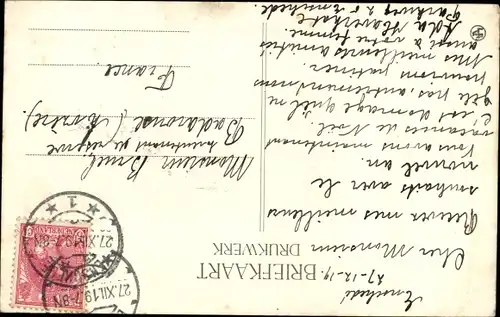 BRIEFKAART
DRUKWERK
Enschede
27-12-19.
Cher Monsieur
Recevez mes meilleurs
souhaits avec le
nouvel an.
Nous avons maintenant
vacances de Noël.
C'est dommage qu'il ne
gèle pas, autrement nous
pourrions patiner.
Mes meilleures amitiés
aussi à votre femme.
Ada Haverkate
Enschede
Monsieur Bruel
lieutenant de réserve
Badaroux (Lozère)
France.
27.XII.19 7-8N
27.XII.19 7-8N